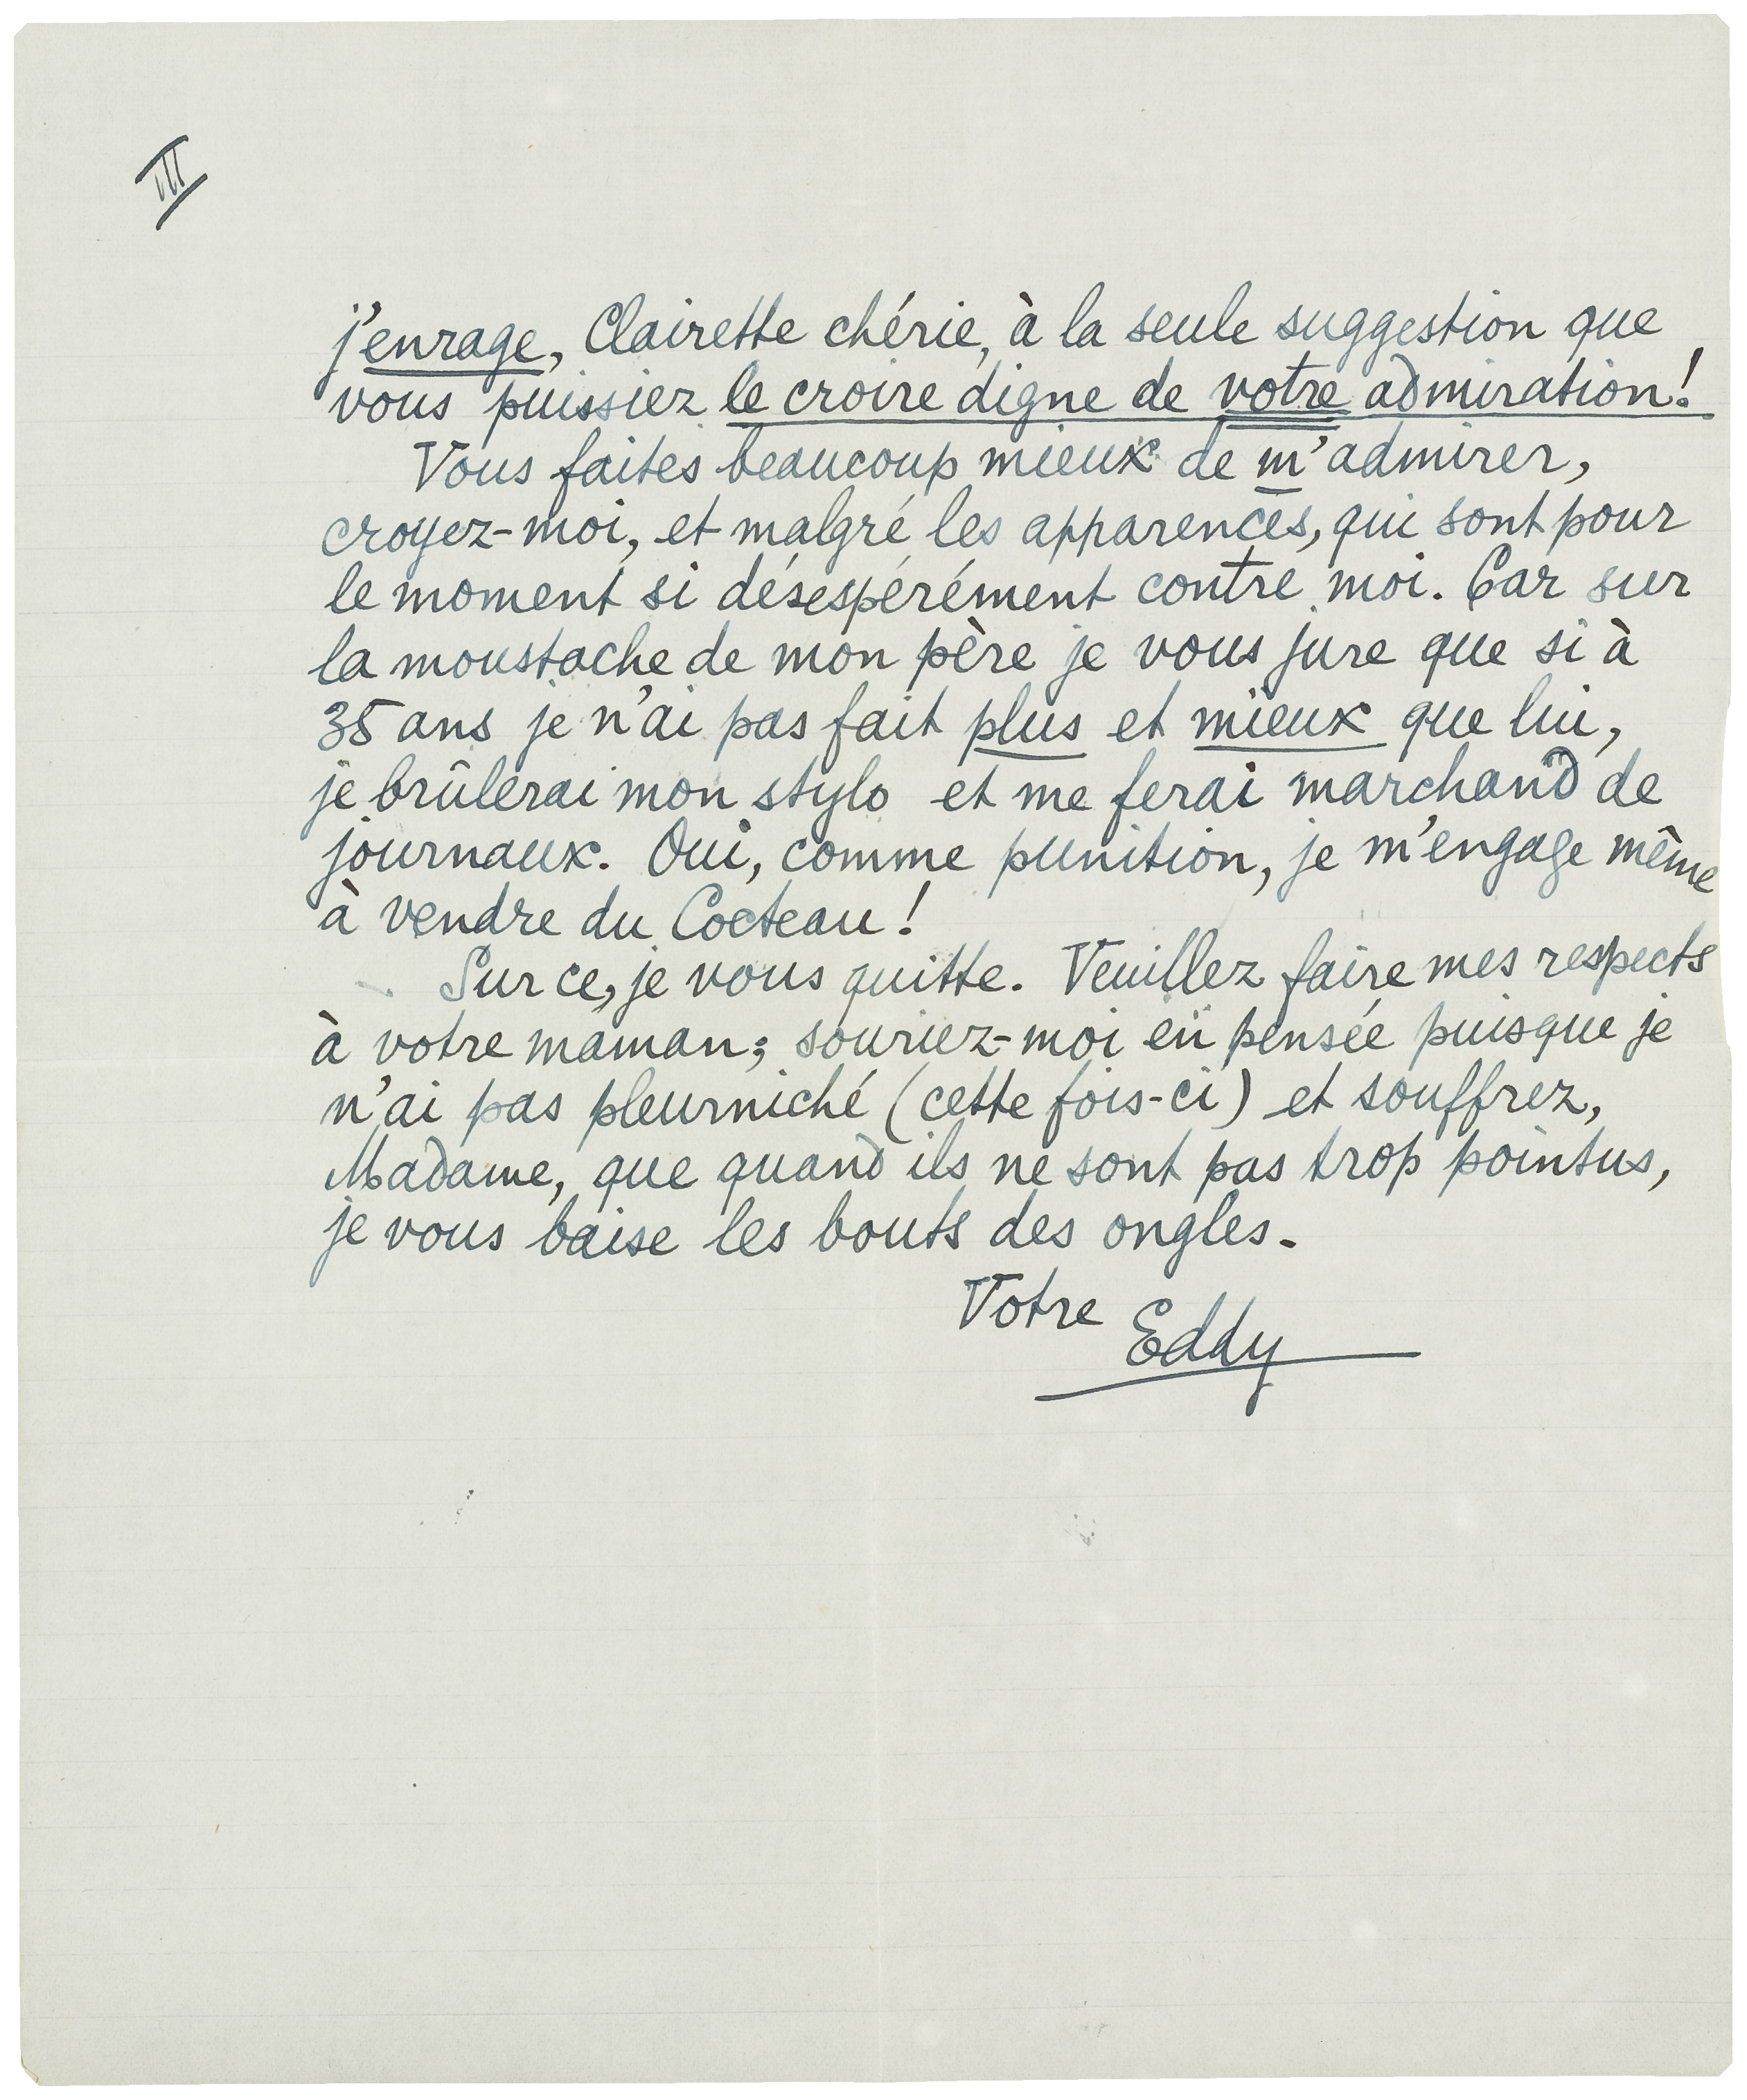 III
j'enrage, Clairette chérie, à la seule suggestion que
vous puissiez le croire digne de votre admiration!
Vous faites beaucoup mieux de m'admirer,
croyez-moi, et malgré les apparences, qui sont pour
le moment si désespérément contre moi. Car sur
la moustache de mon père je vous jure que si à
35 ans je n'ai pas fait plus et mieux que lui,
je brûlerai mon stylo et me ferai marchand de
journaux. Oui, comme punition, je m'engage même
à vendre du Cocteau!
Sur ce, je vous quitte. Veuillez faire mes respects
à votre maman; souriez-moi en pensée puisque je
n'ai pas pleurniché (cette fois-ci) et souffrez,
Madame, que quand ils ne sont pas trop pointus,
je vous baise les bouts des ongles.
Votre Eddy